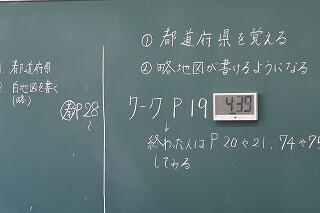 ① 都道府県を覚える
② 略地図が書けるようになる
ワーク P19 4:39
↓
終わった人は P 20や21, 74や75
してみる
1. 都道府県
2. 白地図を書く
(略)
P28
〜